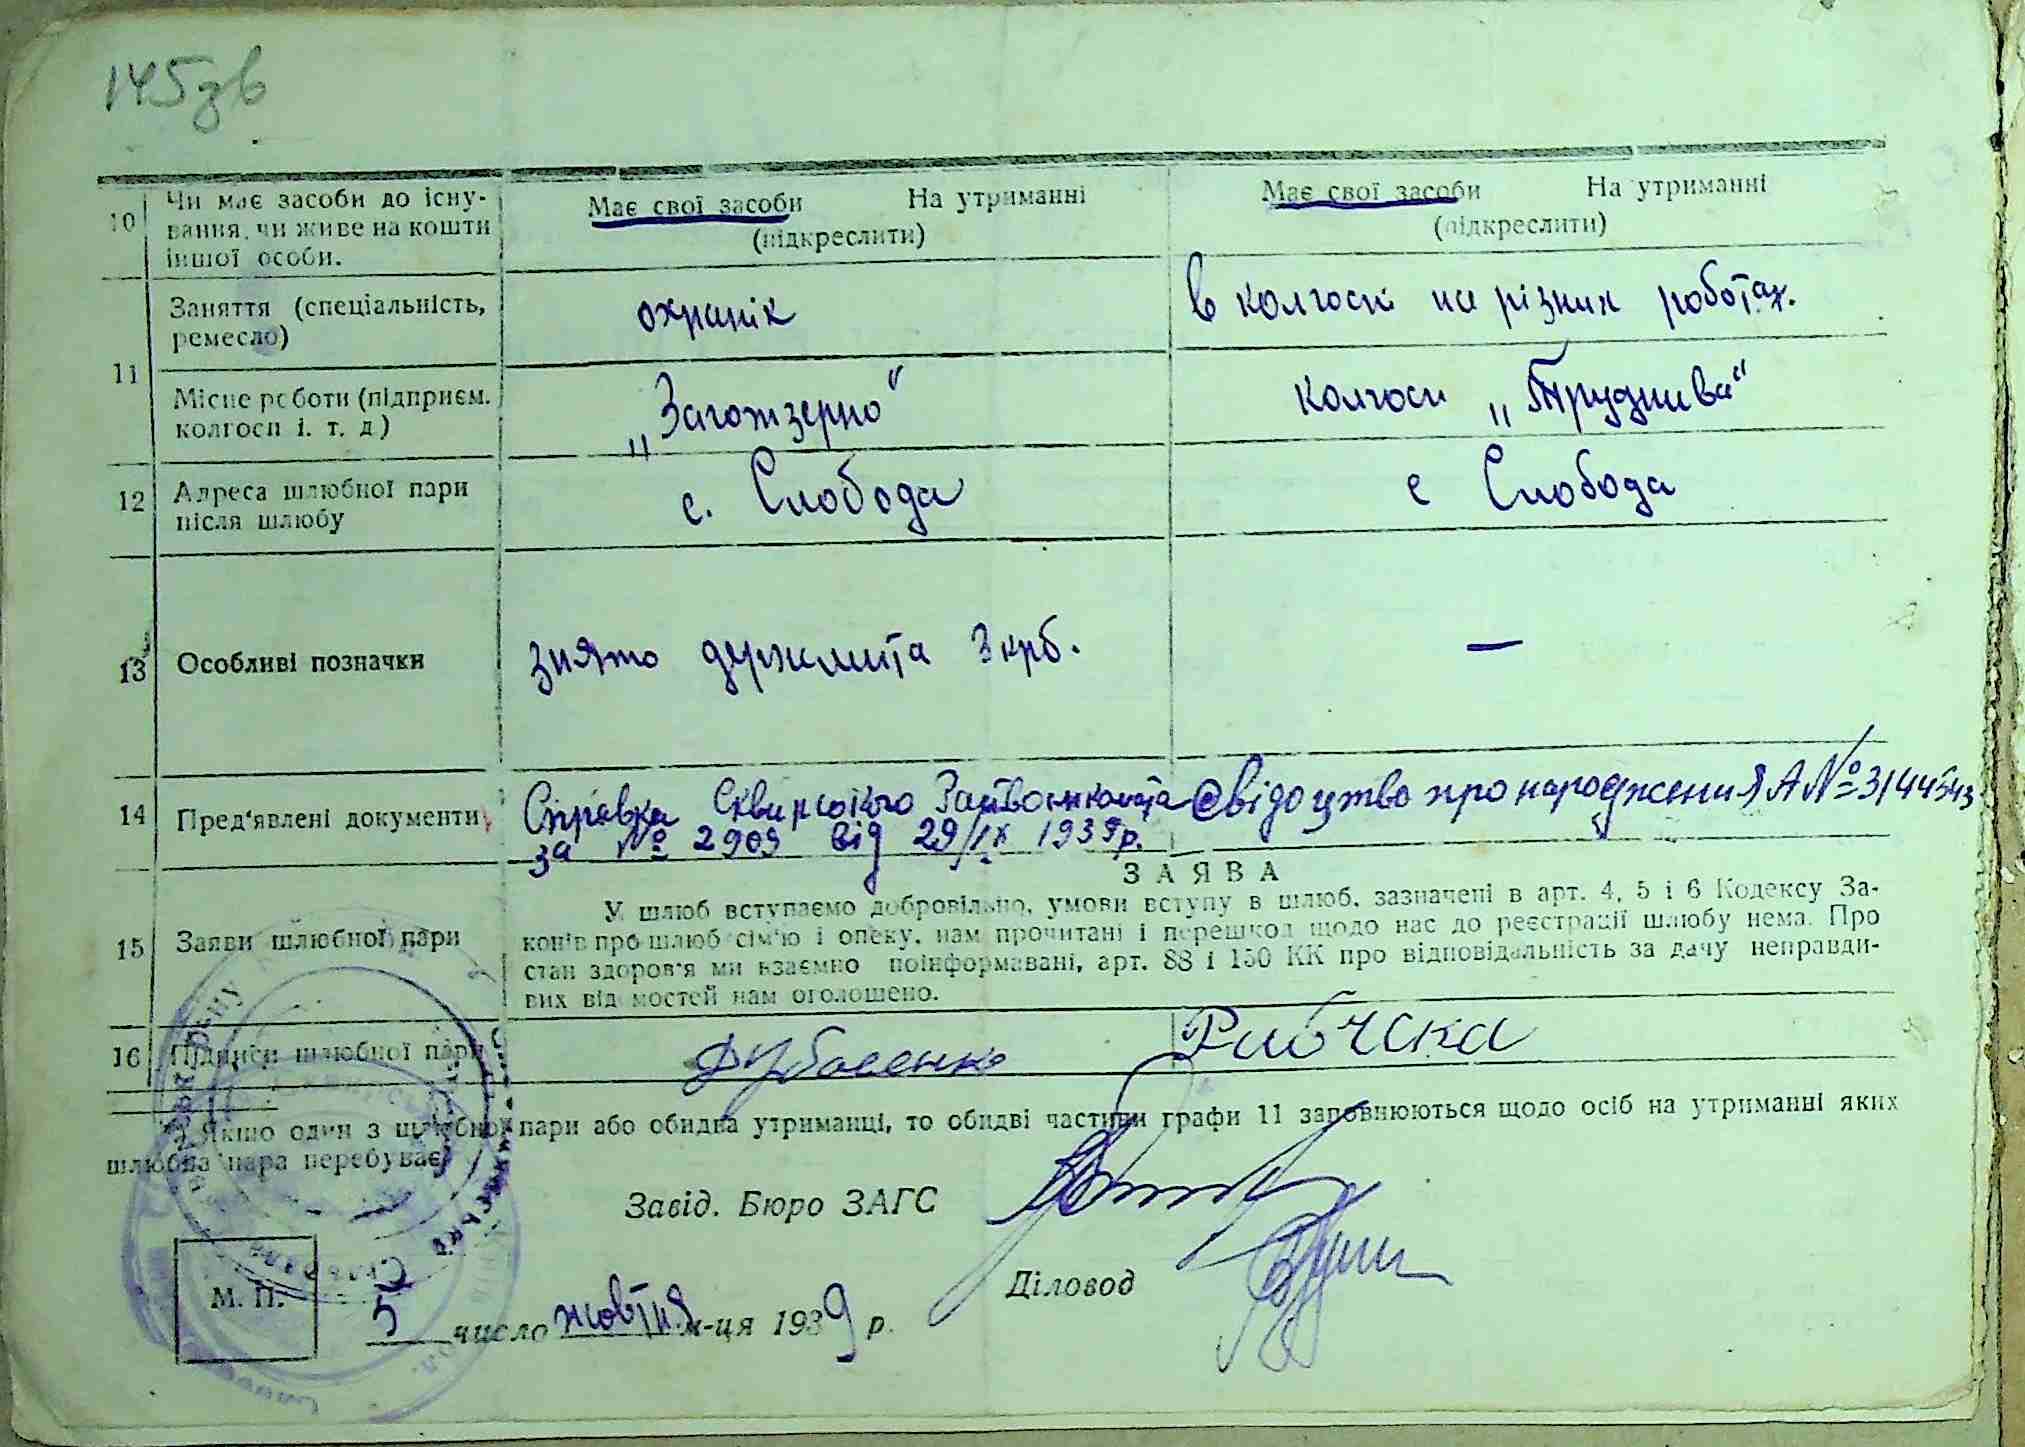 145зв
10 Чи має засоби до існу-
вання, чи живе на кошти
іншої особи.
Має свої засоби На утриманні
(підкреслити)
Має свої засоби На утриманні
(підкреслити)
11 Заняття (спеціальність,
ремесло)
охранік
в колгоспі на різних роботах.
Місце роботи (підприєм.
колгосп і. т. д)
„Заготзерно“
колгосп „Трудннва“
12 Адреса шлюбної пари
після шлюбу
с. Слобода
с Слобода
13 Особливі позначки
знято держмита 3 крб.
—
14 Пред'явлені документи
Справка Сквирського Райвоєнкомата
за № 2909 від 29/IX 1939р.
Свідоцтво про народження А № 3144543
15 Заяви шлюбної пари
ЗАЯВА
У шлюб вступаємо добровільно, умови вступу в шлюб, зазначені в арт. 4, 5 і 6 Кодексу За-
конів про шлюб сім'ю і опеку, нам прочитані і перешкод щодо нас до реєстрації шлюбу нема. Про
стан здоров'я ми взаємно поінформавані, арт. 88 і 150 КК про відповідальність за дачу неправди-
вих від мостей нам оголошено.
16 Підписи шлюбної пари
Рибчска
Якщо один з шлюбної пари або обидва утриманці, то обидві частини графи 11 заповнюються щодо осіб на утриманні яких
шлюбна пара перебуває
Завід. Бюро ЗАГС
Діловод
М. П.
5 число жовтня м-ця 1939 р.